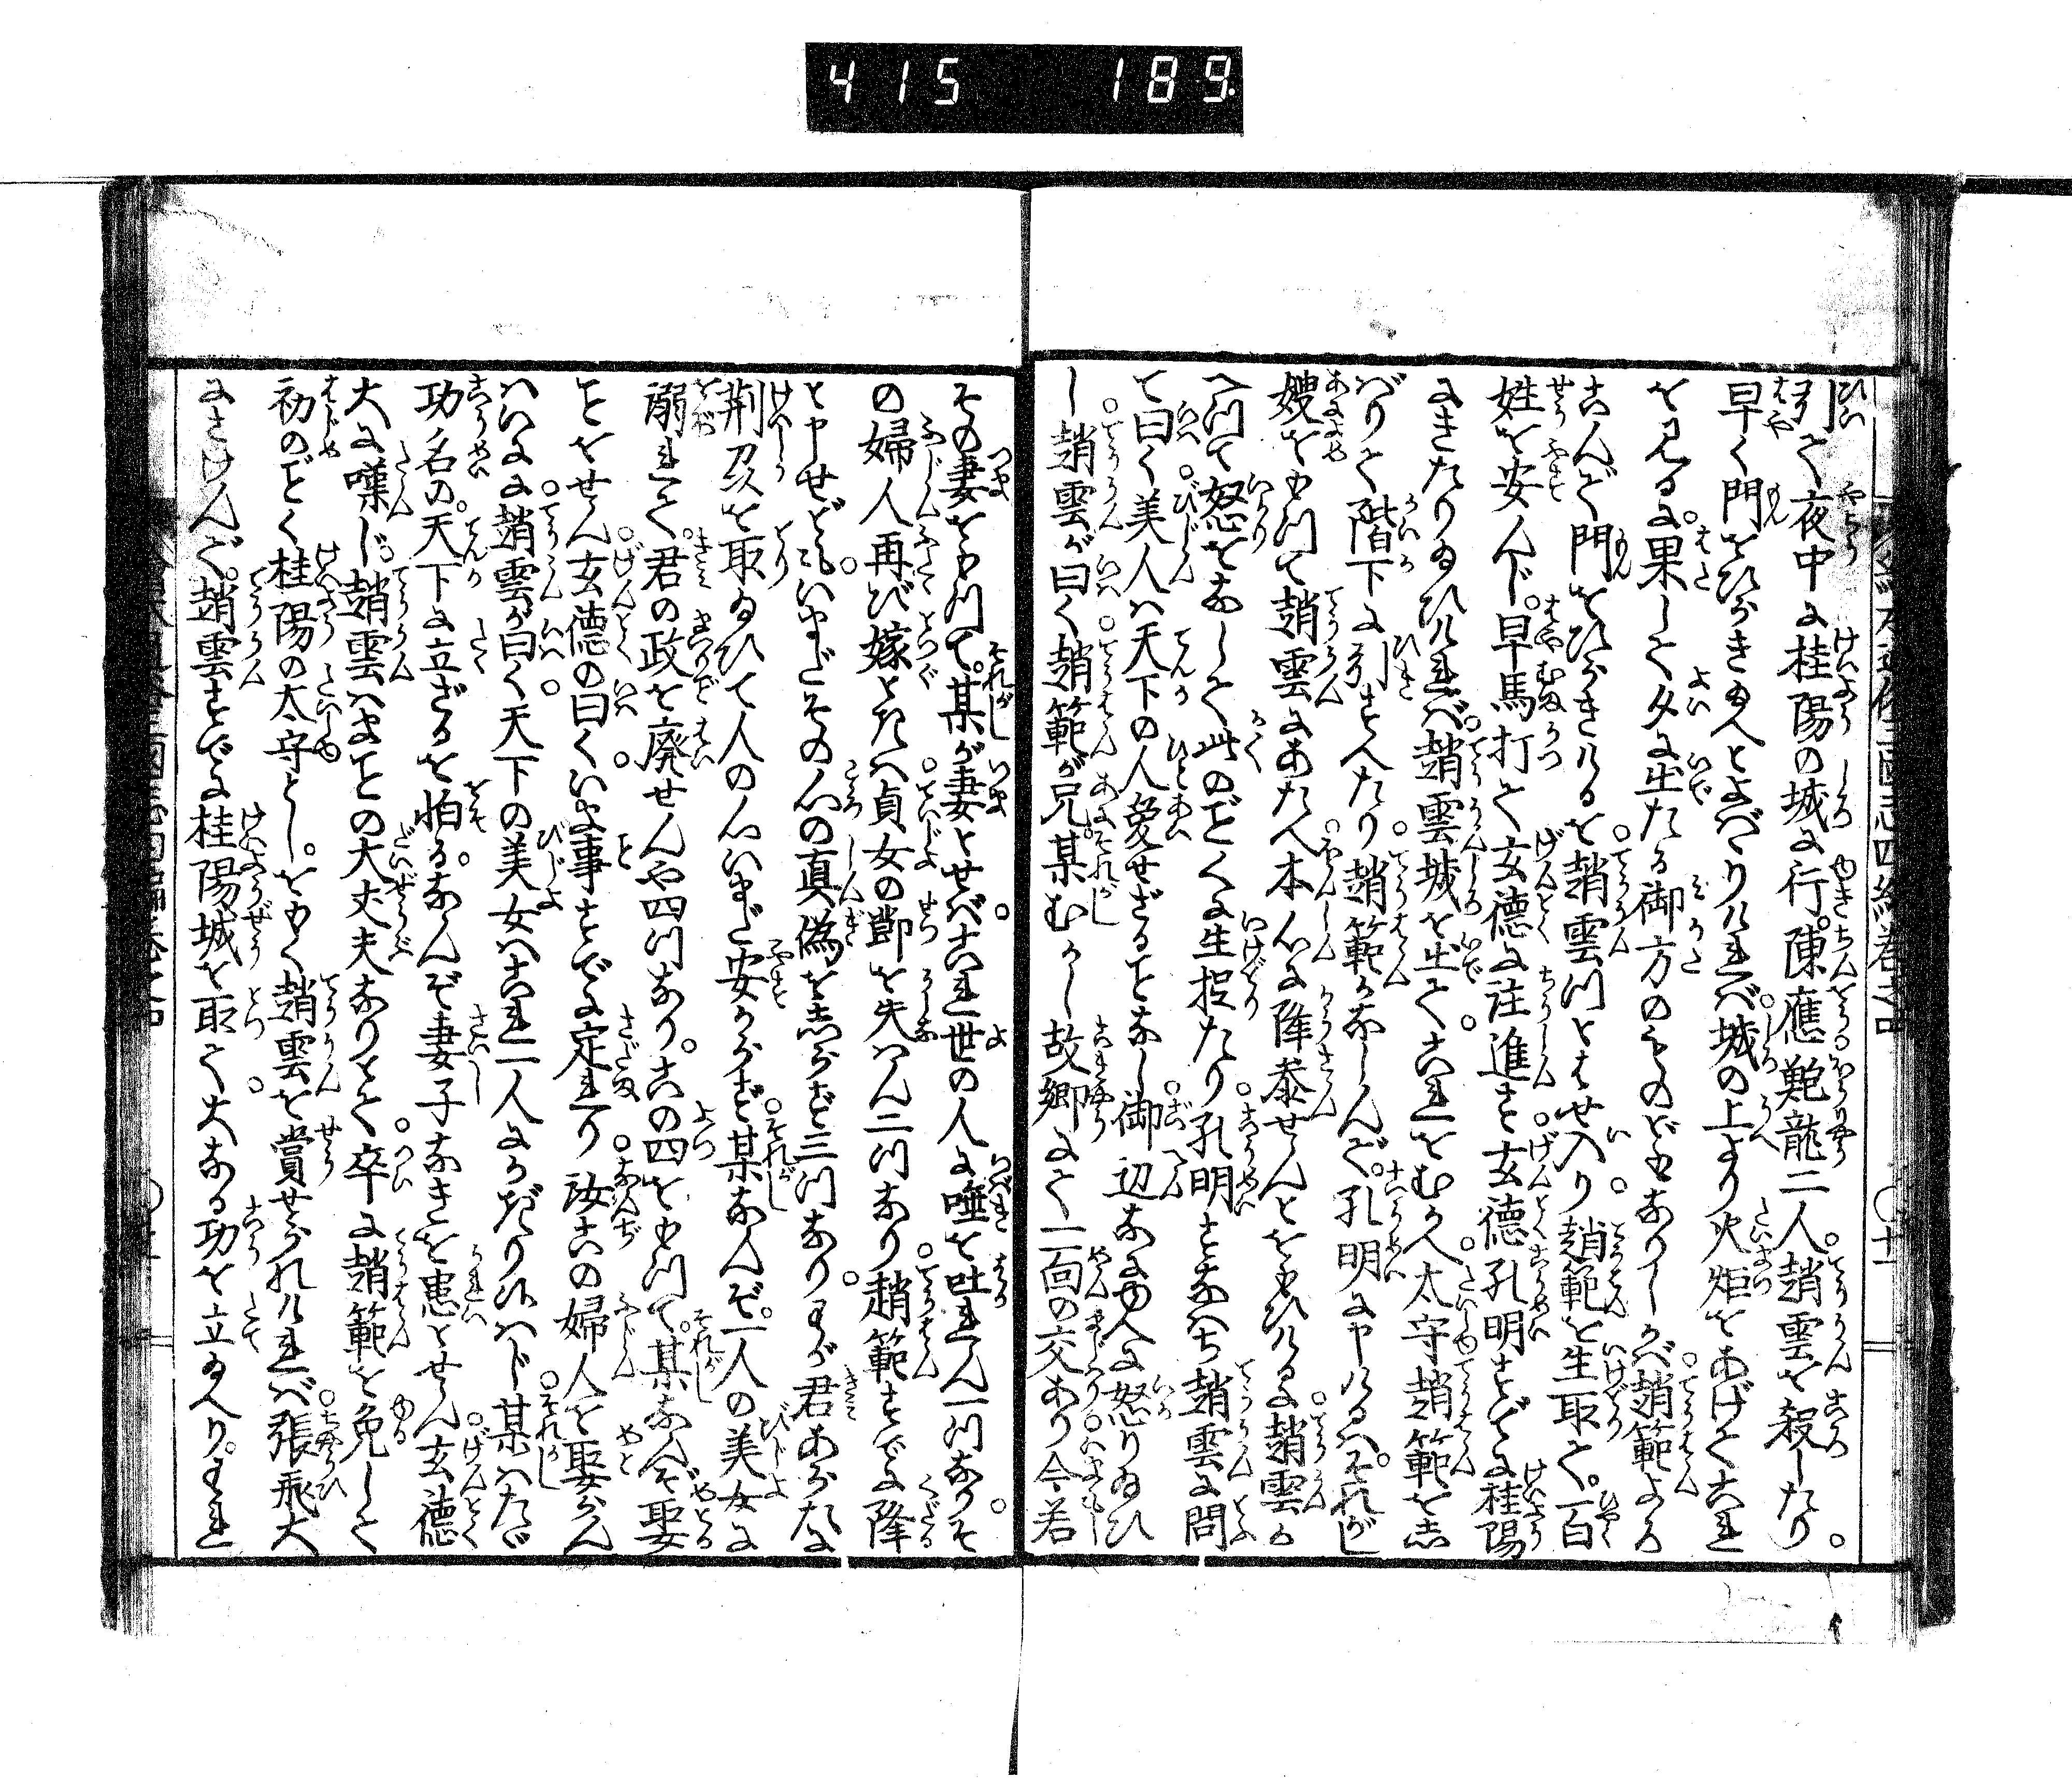 415 189
引て夜中に桂陽の城に行。陳應鮑龍二人趙雲を殺したり。
早く門をひらき玉へとよばゝりければ城の上より火炬をあげてこれ
を見るに。果して夕に出たる御方のものどもなりしかば趙範よろ
こんで門をひらきけるを趙雲川とはせ入り趙範を生取て。百
姓を安んじ。早馬打て玄德に注進す玄德孔明すでに桂陽
にきたり給ひければ趙雲城を出てこれをむかへ太守趙範を志
ばりて階下に引すへたり趙範かなしんで。孔明に申けるは。それがし
嫂をもつて趙雲にあたへ本心に降参せんとをもひけるに趙雲か
へつて怒をなして此のごとくに生捉たり孔明すなはち趙雲に問
て曰く美人は天下の人愛せざることなし御辺なにゆへに怒り給ひ
し趙雲が曰く趙範が兄。某むかし故鄉にて一面の交あり今若
その妻をもつて。某が妻とせばこれ世の人に唾を吐れん一つなり。そ
の婦人再び嫁したらば貞女の節を失はん二つなり趙範すでに降
と申せども。いまだその心の真偽を志らず三つなり。わが君あらたに
荆刕を取給ひて人の心いまだ安からず某なんぞ。一人の美女に
溺れて。君の政を廃せんや四つなり。この四をもつて。某なんぞ娶
ことをせん玄德の曰くいま事すでに定れり汝この婦人を娶らん
はいかに趙雲が曰く天下の美女はこれ一人にかぎり候はじ某はたゞ
功名の。天下に立ざるを怕る。なんぞ妻子なきを患とせん玄德
大に嘆じ。趙雲はまことの大丈夫なりとて卒に趙範を免して
初のごとく桂陽の太守とし。をもく趙雲を賞せられければ張飛大
にさけんで。趙雲すでに桂陽城を取て大なる功を立給へり。われ